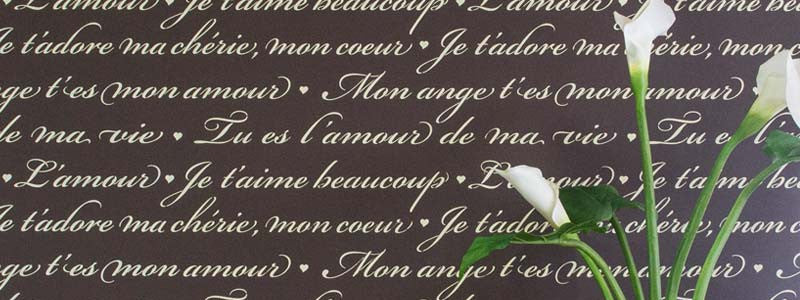 L'amour ♥ Je t'aime beaucoup ♥ L'amour ♥ Je t'aime beaucoup
Je t'adore ma chérie, mon coeur ♥ Je t'adore ma chérie, mon c
ange t'es mon amour ♥ Mon ange t'es mon amour ♥
de ma vie ♥ Tu es l'amour de ma vie ♥ Tu es
♥ L'amour ♥ Je t'aime beaucoup ♥ L'amour ♥ Je t'aime
Je t'adore ma chérie, mon coeur ♥ Je t'adore ma chérie, mon c
ange t'es mon amour ♥ Mon ange t'es mon amour